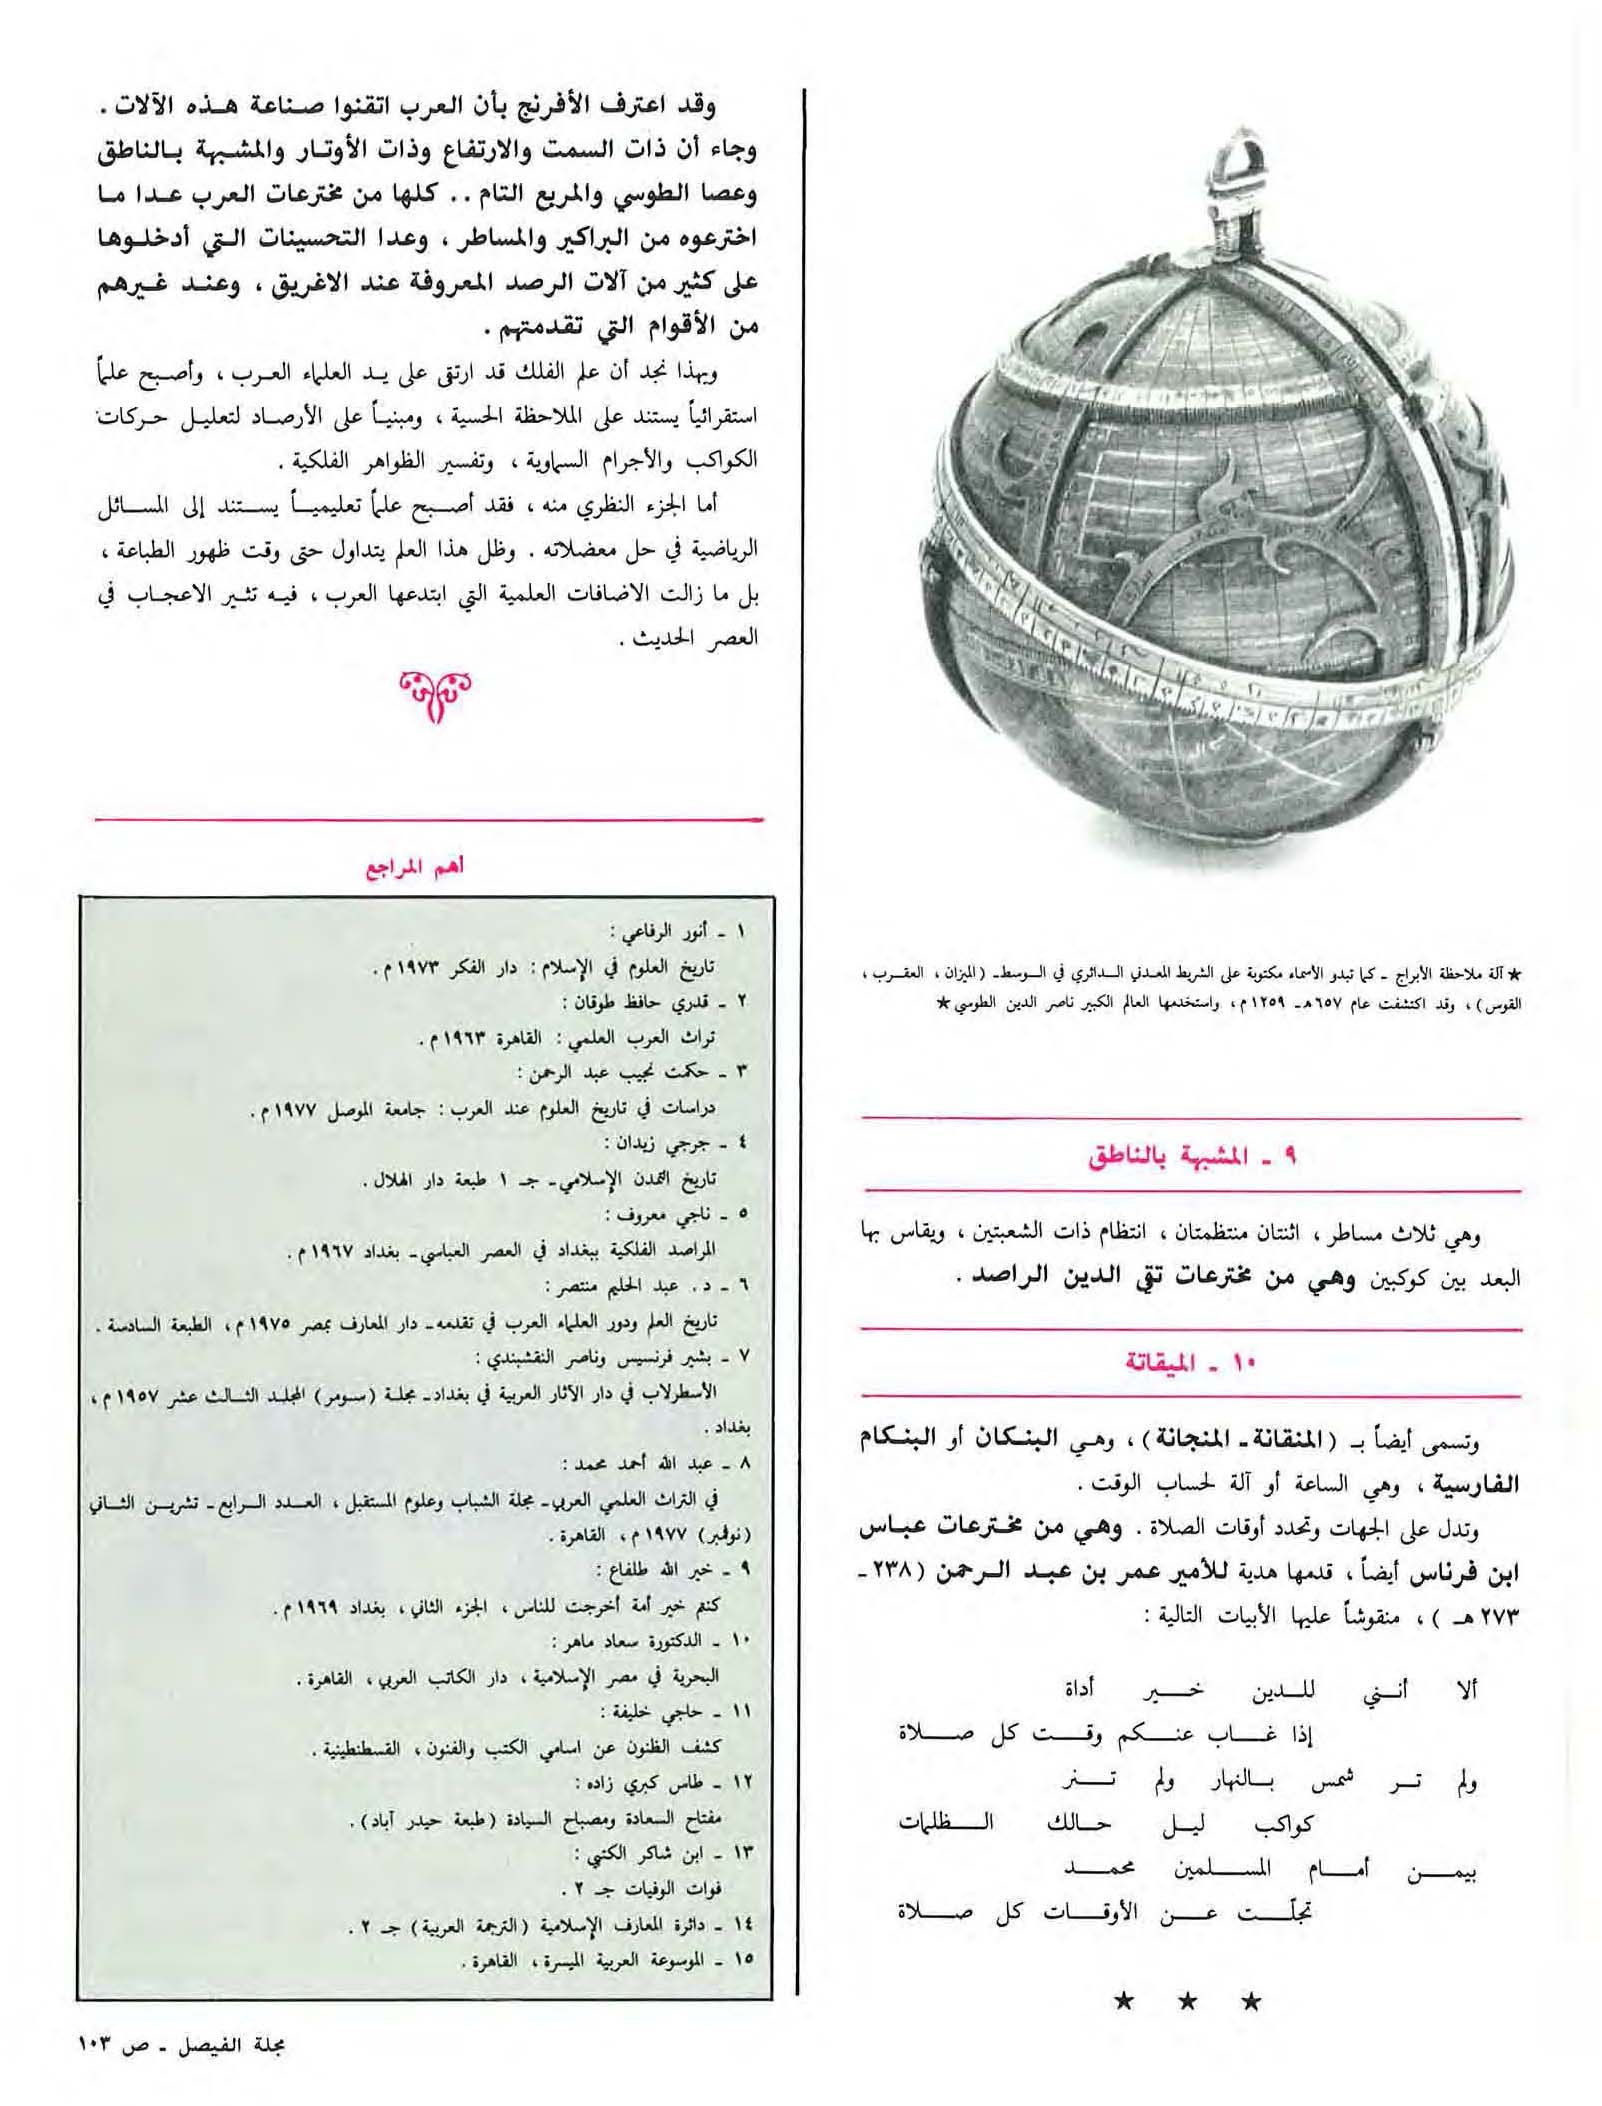 ★ آلة ملاحظة الأبراج - كما تبدو الأسماء مكتوبة على الشريط المعدني الدائري في الوسط - (الميزان ، العقرب ،
القوس) ، وقد اكتشفت عام ٦٥٧هـ - ١٢٥٩ م ، واستخدمها العالم الكبير ناصر الدين الطوسي ★
٩ - المشبهة بالناطق
وهي ثلاث مساطر ، اثنتان منتظمتان ، انتظام ذات الشعبتين ، ويقاس بها
البعد بين كوكبين وهي من مخترعات تقي الدين الراصد .
١٠ - الميقاتة
وتسمى أيضاً بـ (المنقانة - المنجانة) ، وهي البنكان أو البنكام
الفارسية ، وهي الساعة أو آلة لحساب الوقت .
وتدل على الجهات وتحدد أوقات الصلاة . وهي من مخترعات عباس
ابن فرناس أيضاً ، قدمها هدية للأمير عمر بن عبد الرحمن (٢٣٨ -
٢٧٣ هـ) ، منقوشاً عليها الأبيات التالية :
ألا أنني للدين خير أداة
إذا غاب عنكم وقت كل صلاة
ولم تر شمس بالنهار ولم تنر
كواكب ليل حالك الظلمات
بيمن أمام المسلمين محمد
تجلّت عن الأوقات كل صلاة
★ ★ ★
وقد اعترف الأفرنج بأن العرب اتقنوا صناعة هذه الآلات .
وجاء أن ذات السمت والارتفاع وذات الأوتار والمشبهة بالناطق
وعصا الطوسي والمربع التام .. كلها من مخترعات العرب عدا ما
اخترعوه من البراكير والمساطر ، وعدا التحسينات التي أدخلوها
على كثير من آلات الرصد المعروفة عند الاغريق ، وعند غيرهم
من الأقوام التي تقدمتهم .
وبهذا نجد أن علم الفلك قد ارتقى على يد العلماء العرب ، وأصبح علماً
استقرائياً يستند على الملاحظة الحسية ، ومبنياً على الأرصاد لتعليل حركات
الكواكب والأجرام السماوية ، وتفسير الظواهر الفلكية .
أما الجزء النظري منه ، فقد أصبح علماً تعليمياً يستند إلى المسائل
الرياضية في حل معضلاته . وظل هذا العلم يتداول حتى وقت ظهور الطباعة ،
بل ما زالت الاضافات العلمية التي ابتدعها العرب ، فيه تثير الاعجاب في
العصر الحديث .
أهم المراجع
١ - أنور الرفاعي :
تاريخ العلوم في الإسلام : دار الفكر ١٩٧٣ م .
٢ - قدري حافظ طوقان :
تراث العرب العلمي : القاهرة ١٩٦٣ م .
٣ - حكمت نجيب عبد الرحمن :
دراسات في تاريخ العلوم عند العرب : جامعة الموصل ١٩٧٧ م .
٤ - جرجي زيدان :
تاريخ التمدن الإسلامي - جـ ١ طبعة دار الهلال .
٥ - ناجي معروف :
المراصد الفلكية ببغداد في العصر العباسي - بغداد ١٩٦٧ م .
٦ - د . عبد الحليم منتصر :
تاريخ العلم ودور العلماء العرب في تقدمه - دار المعارف بمصر ١٩٧٥ م ، الطبعة السادسة .
٧ - بشير فرنسيس وناصر النقشبندي :
الأسطرلاب في دار الآثار العربية في بغداد - مجلة (سومر) المجلد الثالث عشر ١٩٥٧ م ،
بغداد .
٨ - عبد الله أحمد محمد :
في التراث العلمي العربي - مجلة الشباب وعلوم المستقبل ، العدد الرابع - تشرين الثاني
(نوفمبر) ١٩٧٧ م ، القاهرة .
٩ - خير الله طلفاع :
كنتم خير أمة أخرجت للناس ، الجزء الثاني ، بغداد ١٩٦٩ م .
١٠ - الدكتورة سعاد ماهر :
البحرية في مصر الإسلامية ، دار الكاتب العربي ، القاهرة .
١١ - حاجي خليفة :
كشف الظنون عن اسامي الكتب والفنون ، القسطنطينية .
١٢ - طاس كبري زاده :
مفتاح السعادة ومصباح السيادة (طبعة حيدر آباد) .
١٣ - ابن شاكر الكتبي :
فوات الوفيات جـ ٢ .
١٤ - دائرة المعارف الإسلامية (الترجمة العربية) جـ ٢ .
١٥ - الموسوعة العربية الميسرة ، القاهرة .
مجلة الفيصل - ص ١٠٣